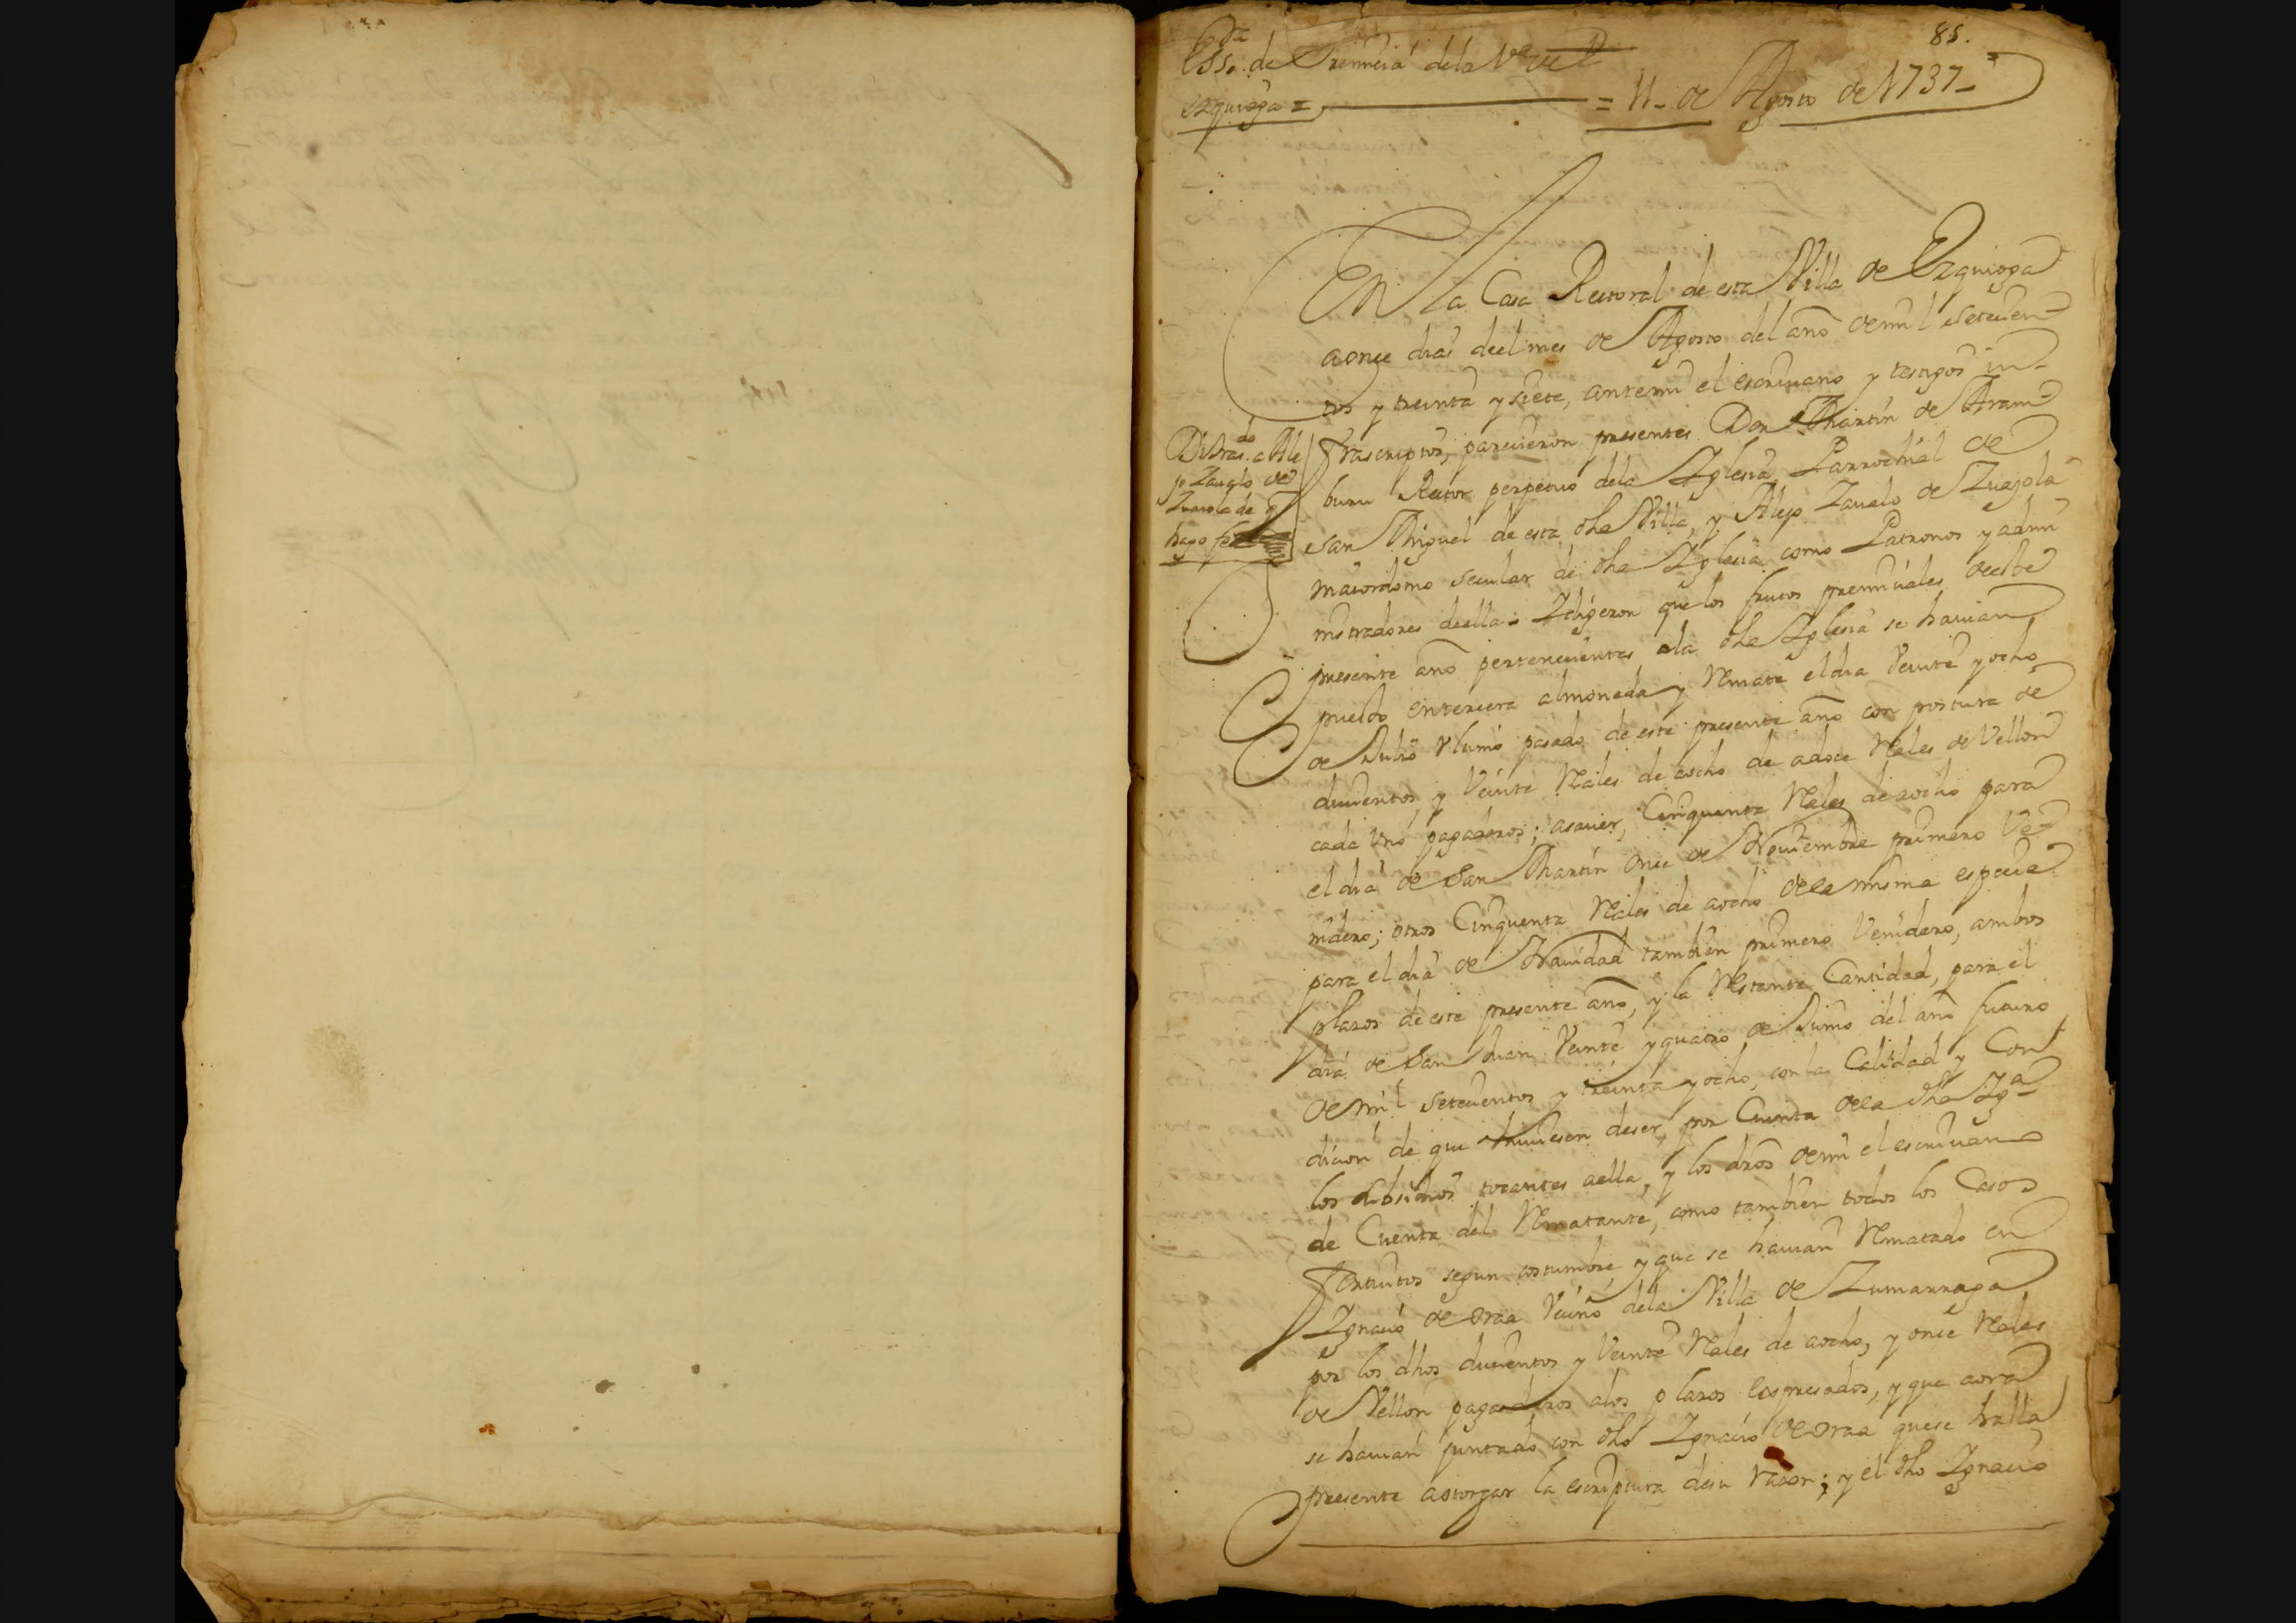 85.
Essra. de Premiçia dela Va de
Ezquioga = = 11- de Agosto de 1737-
En la Casa Rectoral de esta Villa de Ezquioga
aonçe dias deel mes de Agosto del año de mil seteçien-
tos y treinta y siete, antemi el escrivano y testigos in-
frascriptos, pareçieron presentes Don Martin de Aram-
buru Rector perpetuo dela Iglesia Parrochial de
san Miguel de esta dha Villa, y Alejo Zavalo de Zuazola
maiordomo secular de dha Iglesia como Patronos y admi
nistradores deella = Idigeron que los frutos premiçiales deeste
presente año perteneçientes ala dha Iglesia se havian
puesto enterçera almoneda y Remate eldia Veinte y ocho
de Julio Vltimo pasado de este presente año con postura de
duçientos y Veinte Rales de aocho de adoçe Rales de Vellon
cada Vno pagaderos; asaver, Cinquenta Rales de aocho para
el dia de San Martin onçe de Noviembre primero Ve-
nidero; otros Cinquenta Rales de aocho dela misma espeçie
para el dia de Navidad tambien primero Venidero, ambos
plazos de este presente año, y la Restante Cantidad, para el
dia de San Juan Veinte y quatro de Junio del año futuro
de mil seteçientos y treinta y ocho, con la Calidad y Con
diçion de que huviesen deser por Cuenta dela dha Iga
los subsidios tocantes aella, y los dros demi el escrivano
de Cuenta del Rematante, como tambien todos los Casos
fortuitos segun costumbre, y que se havian Rematado en
Ignaçio de oraa Veçino dela Villa de Zumarraga
por los dhos duçientos y Veinte Rales de aocho, y onçe Rales
de Vellon pagaderos alos plazos Expresados, y que aora
se havian juntado con dho Ignaçio de oraa quese halla
presente aotorgar la escriptura desu razon; y el dho Ignaçio
Di tras.do a Ale
jo Zavalo de
Zuazola de q
hago fee